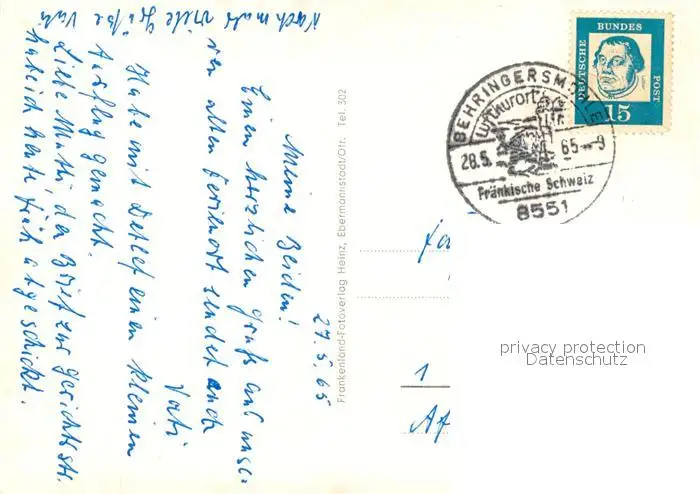 27.5.65
Meine Beiden!
Einen herzlichen Gruß aus unse-
ren alten Ferienort sendet euch
Vati
Habe mit Detlef einen kleinen
Ausflug gemacht.
Liebe Mutti, der Brief zur Gerichtsstr.
habe ich heute früh abgeschickt.
Nochmals viele Grüße Vati
Frankenland-Fotoverlag Heinz, Ebermannstadt/Ofr. Tel. 302
DEUTSCHE BUNDES POST
15
BEHRINGERSMÜHLE
Luftkurort
28.5. 65-9
Fränkische Schweiz
8551
1
privacy protection
Datenschutz